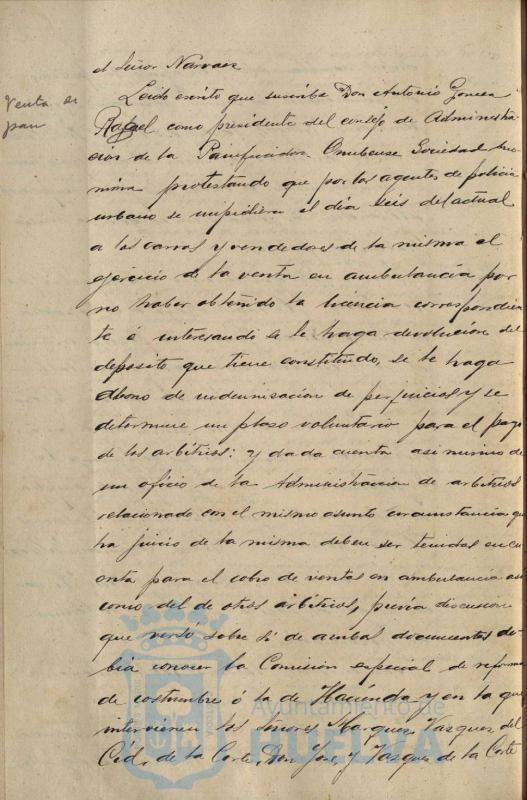 el Señor Narvaez
Venta de
pan
Leido escrito que suscribe Don Antonio
Rafael como presidente del consejo de Administra
cion de la Panificadora Onubense Sociedad Ano
nima protestando que por los agentes de policia
urbana se impidiera el dia seis del actual
a los carros y vendedores de la misma el
ejercicio de la venta en ambulancia por
no haber obtenido la licencia correspondien
te é interesando se le haga devolución del
deposito que tiene constituido, se le haga
abono de indemnisación de perjuicios y se
determine un plaso voluntario para el pago
de los arbitrios: y dada cuenta asi mismo de
un oficio de la Administracion de arbitrios
relacionado con el mismo asunto circunstancia que
ha juicio de la misma deben ser tenidas en cu
enta para el cobro de ventas en ambulancia asi
como del de otros arbitrios, previa discusion
que versó sobre si de ambos documentos de-
bia conocer la Comisión especial de reforma
de costumbre ó la de Hacienda y en la que
intervienen los Señores Marquez, Vasquez del
Cid, de la Corte, Don José, y Vasquez de la Corte
Ayuntamiento de
HUELVA